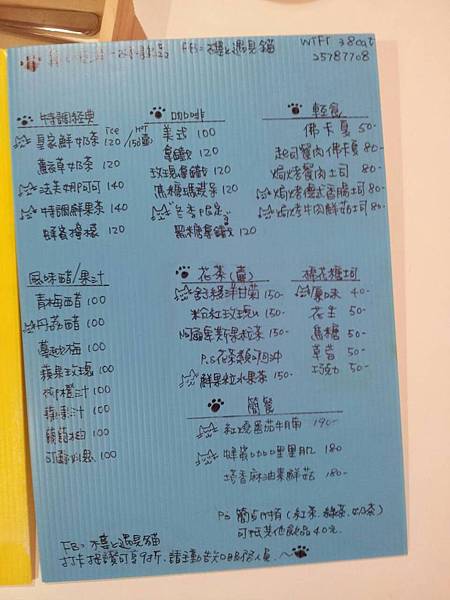 FB: 樓上遇見貓 WIFI 38cat
25787708
特調經典 ice HOT
皇家鮮奶茶 120 /150(壺)
薰衣草奶茶 120
法芙娜可可 140
特調鮮果茶 140
蜂蜜檸檬 120
咖啡
美式 100
拿鐵 120
玫瑰拿鐵 120
焦糖瑪琪朵 120
黑糖拿鐵 120
輕食
佛卡夏 50-
起司薯肉佛卡夏 80-
焗烤薯肉土司 80-
焗烤德式香腸土司 80-
焗烤牛肉鮮菇土司 80-
風味醋/果汁
青梅醋 100
丹荔醋 100
蔓越梅 100
蘋果玫瑰 100
柳橙汁 100
蘋果汁 100
葡萄柚 100
可爾必思 100
花茶(壺)
舒緩洋甘菊 150-
粉紅玫瑰 150-
阿薩斯果粒茶 150-
P.S 花茶類可回沖
鮮果粒水果茶 150-
棉花糖土司
原味 -40
花生 50-
焦糖 50-
草苺 50-
巧克力 50-
簡餐
紅燒蕃茄牛腩 190-
180
塔香麻油杏鮮菇 180-
P.S 簡餐附(紅茶. 綠茶. 奶茶)
可抵其他飲品40元.
FB: 樓上遇見貓
打卡按讚可享9折, 請主動告知服務人員.~